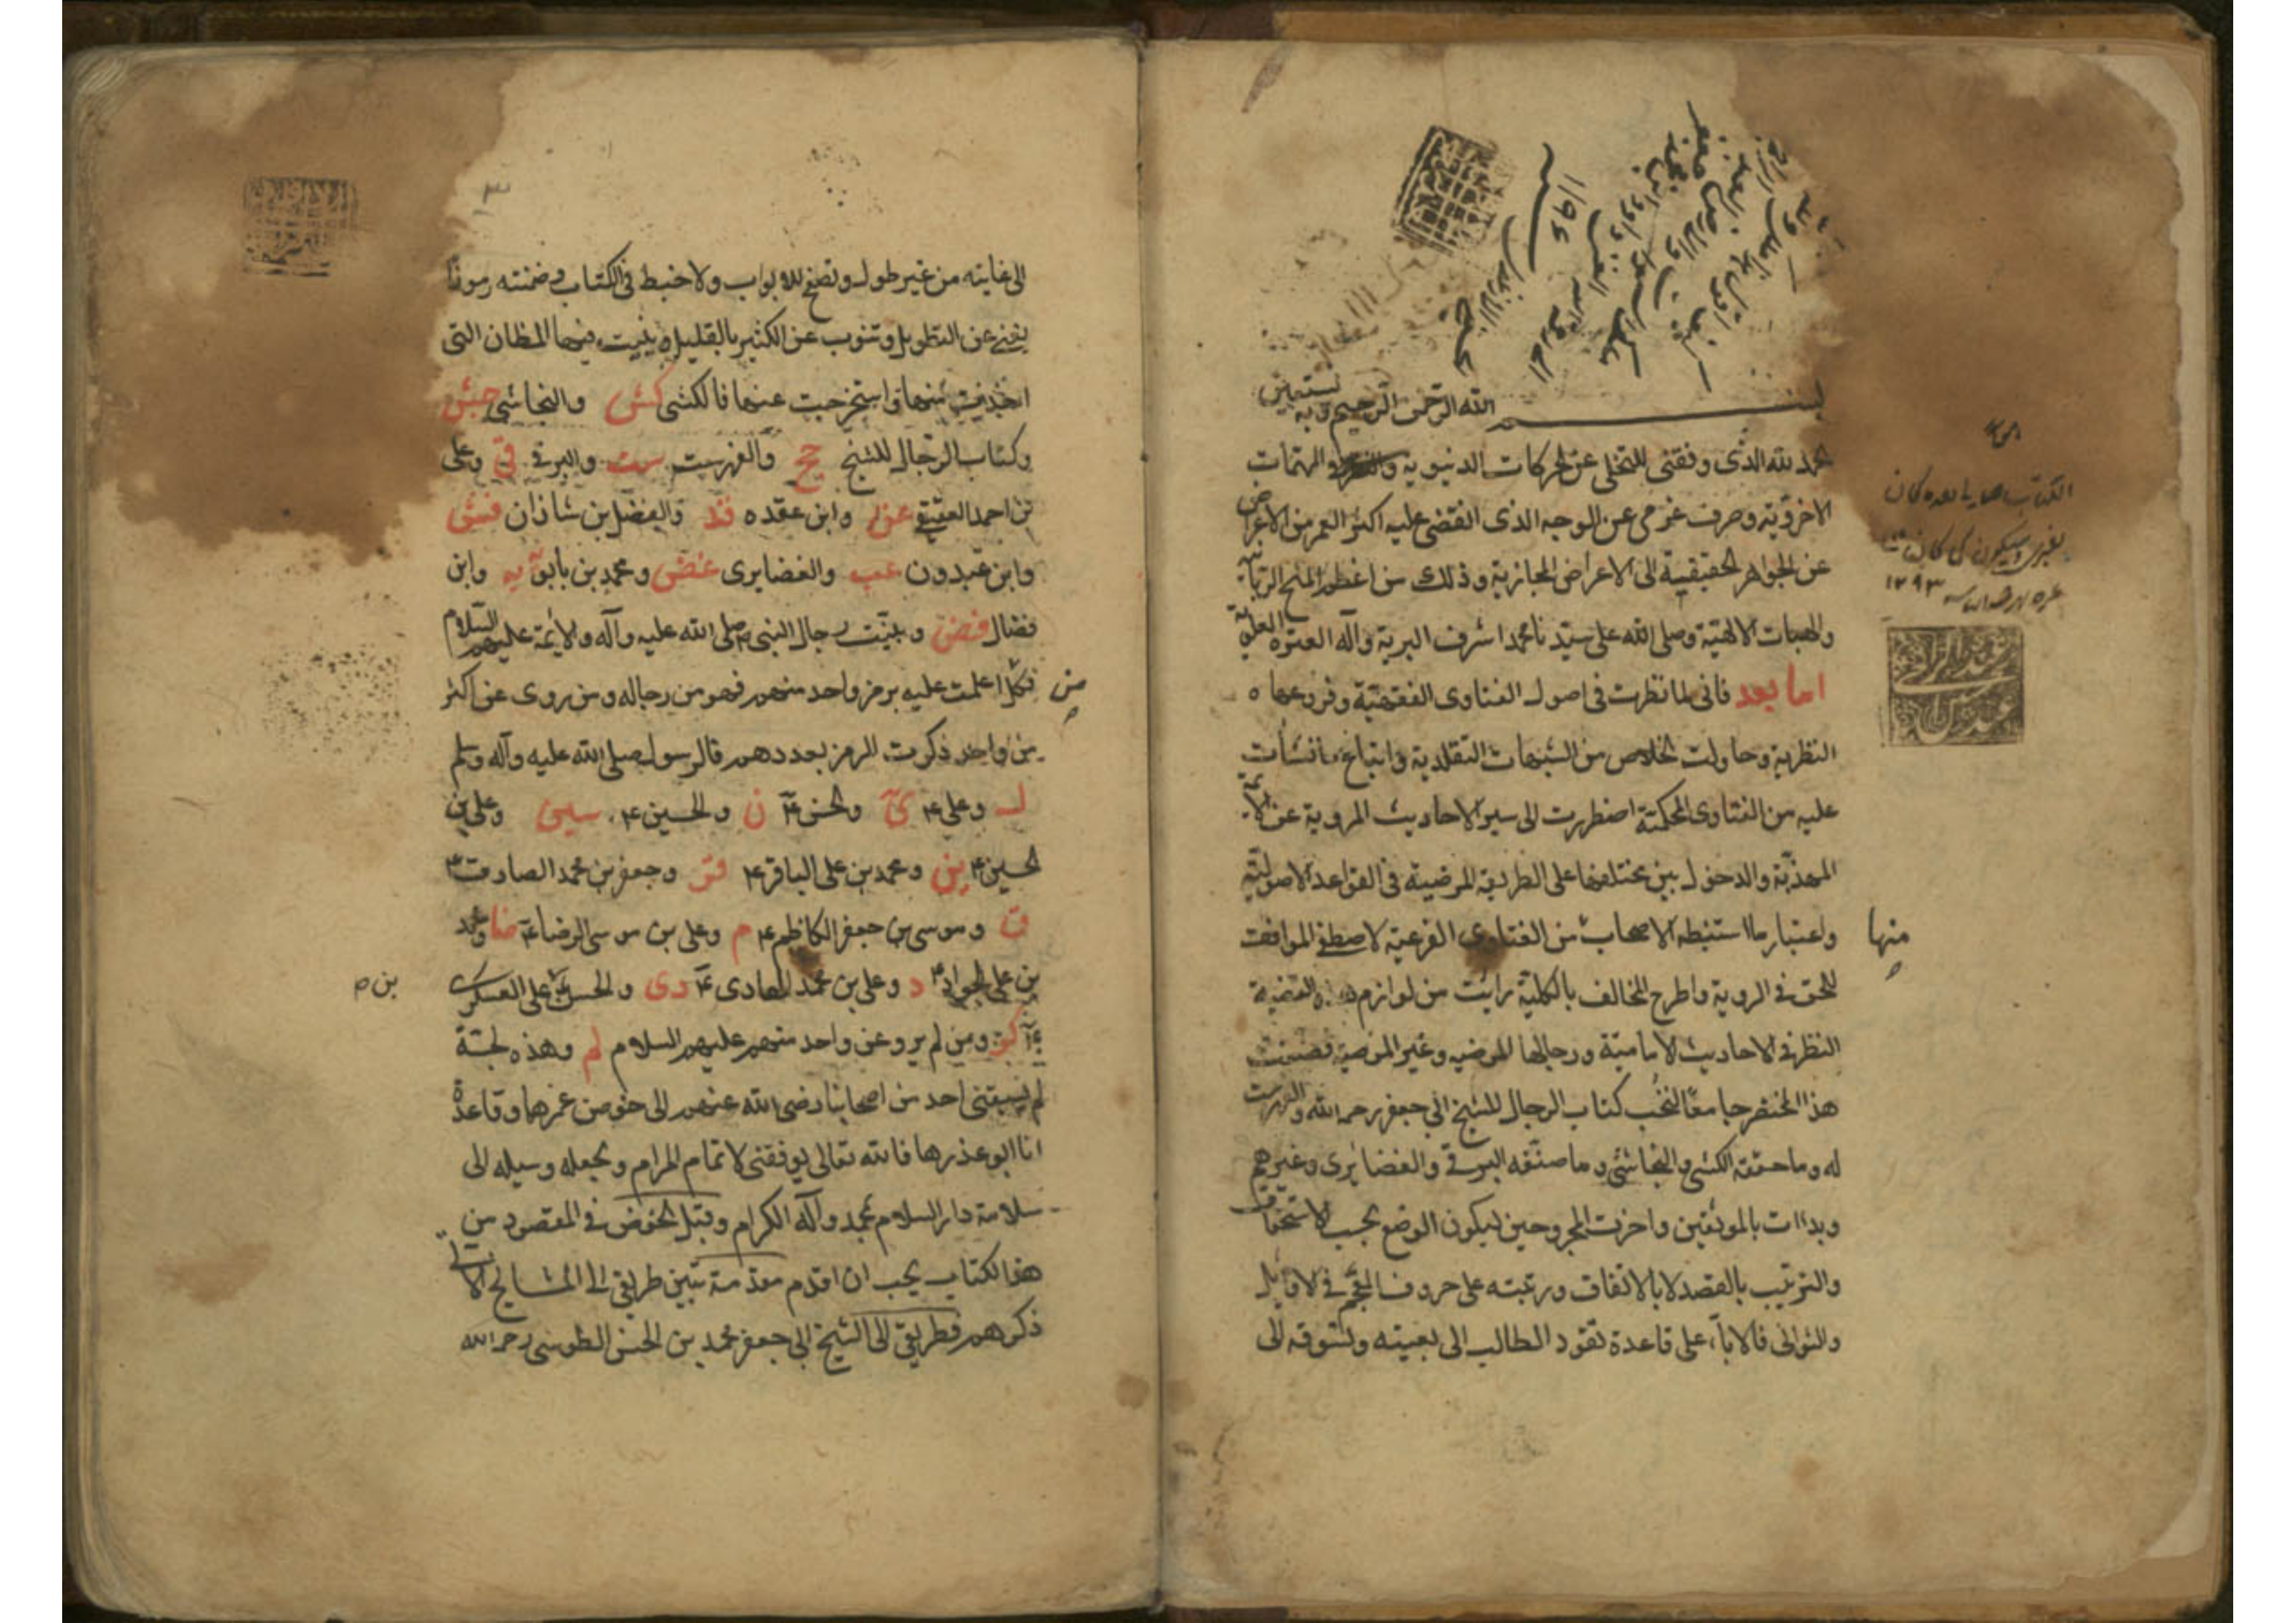 بسم الله الرحمن الرحيم وبه نستعين
الحمد لله الذى وفقنى للتخلى عن الحركات الدنيوية والنظر فى المهمات
الاخروية وصرف عزمى عن الوجه الذى انقضى عليه اكثر العمر من الاعراض
عن الجواهر الحقيقية الى الاعراض المجازية وذلك من اعظم المنح الربانية
والهبات الالهية وصلى الله على سيدنا محمد اشرف البرية وآله العترة العلوية
اما بعد فانى لما نظرت فى اصول الفتاوى الفقهية وفروعها ه
النظرية وحاولت الخلاص من الشبهات التقليدية واتباع ما نشأت
عليه من الفتاوى المحكمة اضطررت الى سبر الاحاديث المروية عن الائمة
المهدية والدخول بين مختلفها على الطريقة المرضية فى القواعد الاصولية
واعتبار ما استنبطه الاصحاب من الفتاوى الفرعية لاصطفى الموافق
منها
للحق فى الروية واطرح المخالف بالكلية رايت من لوازم هذه القضية
النظر فى الاحاديث الامامية ورجالها المرضيه وغير المرضية فصنفت
هذا المختصر جامعا لنخب كتاب الرجال للشيخ ابى جعفر رحمه الله والفهرست
له وما حققه الكشى والنجاشى وما صنفه البرقى والغضايرى وغيرهم
وبداات بالموثقين واخرت المجروحين ليكون الوضع بحسب الاستحقاق
والترتيب بالقصد لا بالاتفاق ورتبته على حروف المعجم فى الاوايل
والثوانى فالاباء على قاعدة تقود الطالب الى بغيته وتسوقه الى
١١٩٤
١٢٩٣
الى غايته من غير طول وتصفح للابواب ولا خبط فى الكتاب وضمنته رموزا
يغنى عن التطويل وتنوب عن الكثير بالقليل ه بينت فيها المظان التى
اخذت منها واستخرجت عنها فالكشى كش والنجاشى جش
وكتاب الرجال للشيخ جخ والفهرست ست والبرقى قى وعلى
بن احمد العقيقى عق وابن عقده قد والفضل بن شاذان فش
وابن عبدون عب والغضايرى غض ومحمد بن بابويه يه وابن
فضال فض وبينت رجال النبى صلى الله عليه وآله والائمة عليهم السلام
فكل من اعلمت عليه برمز واحد منهم فهو من رجاله ومن روى عن اكثر
من واحد ذكرت الرمز بعددهم فالرسول صلى الله عليه وآله وسلم
ل وعلى ع ى والحسن ع ن والحسين ع سين وعلى بن
الحسين ع ين ومحمد بن على الباقر ع قر وجعفر بن محمد الصادق ع
ق وموسى بن جعفر الكاظم ع م وعلى بن موسى الرضا ع ضا ومحمد
بن على الجواد ع د وعلى بن محمد الهادى ع دى والحسن بن على العسكرى
ع كر ومن لم يرو عن واحد منهم عليهم السلام لم وهذه لجة
لم يسبقنى احد من اصحابنا رضى الله عنهم الى خوض غمرها وقاعدة
انا ابو عذرها فالله تعالى يوفقنى لاتمام المرام ويجعله وسيله الى
سلامة دار السلام بمحمد وآله الكرام وقبل الخوض فى المقصود من
هذا الكتاب يجب ان اقدم مقدمة تبين طريقى الى المشايخ الاتى
ذكرهم فطريقى الى الشيخ ابى جعفر محمد بن الحسن الطوسى رحمه الله